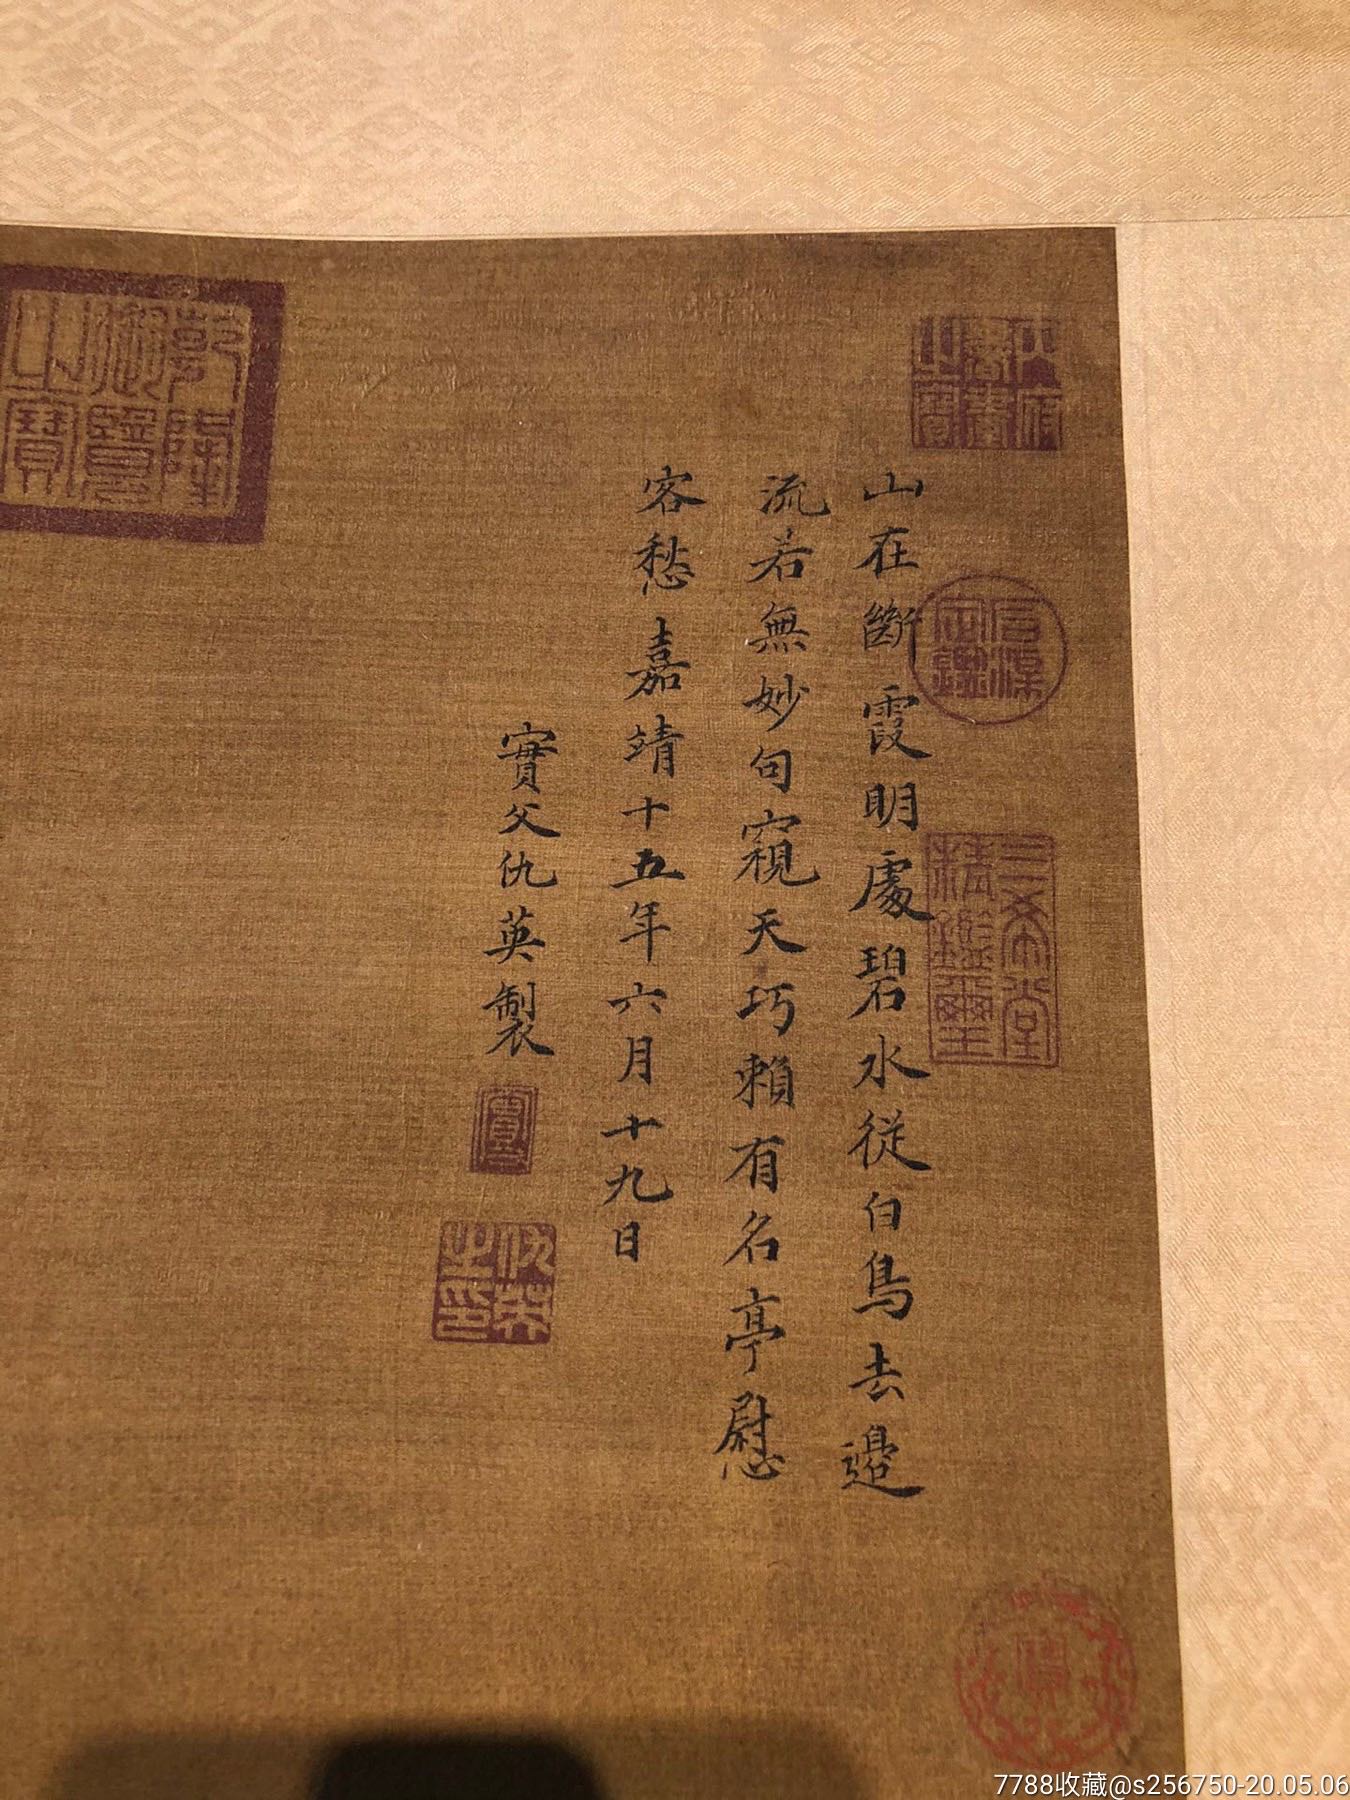 山在斷霞明處碧水從白鳥去邊
流若無妙句窺天巧賴有名亭慰
客愁嘉靖十五年六月十九日
實父仇英製
內府書畫之寶
信溧定鑑
三希堂精鑑璽
乾隆御覽之寶
仇英之印
7788收藏@s256750-20.05.06